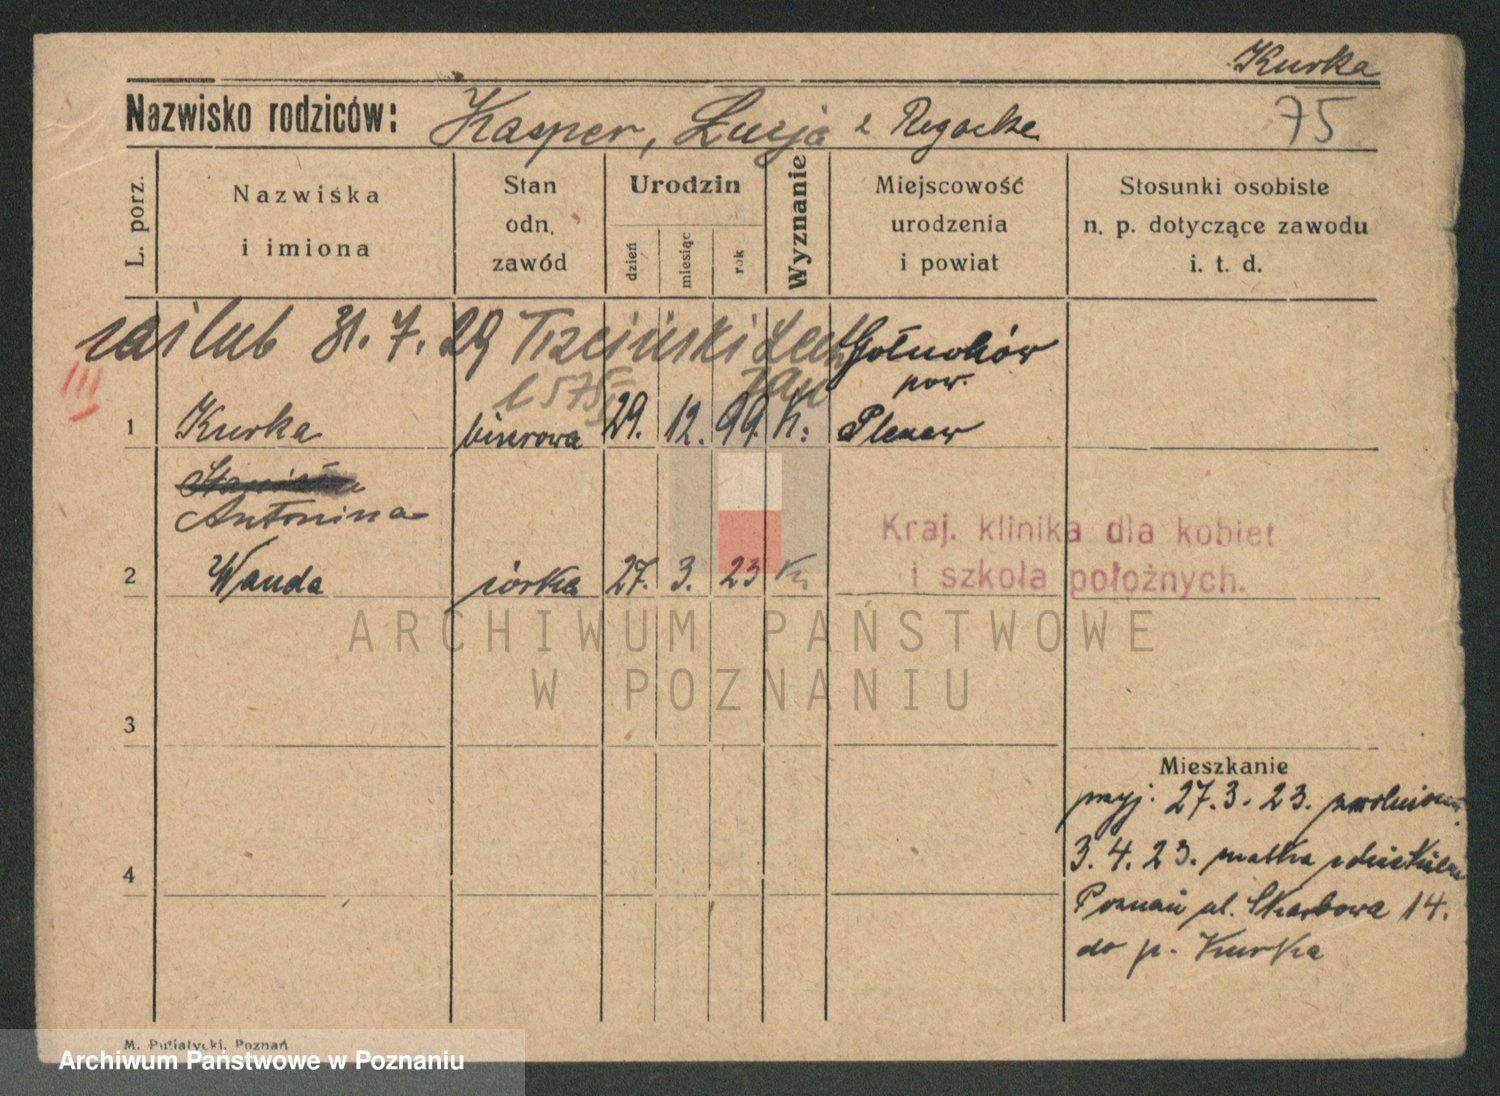 Kurka
Nazwisko rodziców: Kasper, Łucja z Rogacke
75
L. porz.
Nazwiska i imiona
Stan odn. zawód
Urodzin
dzień miesiąc rok
Wyznanie
Miejscowość urodzenia i powiat
Stosunki osobiste n. p. dotyczące zawodu i. t. d.
zaślub 31. 7. 29 Trzciński Lech
Jan
III
Gołuchów
pow.
1 Kurka biurowa 29. 12. 99. K. Pleszew
Antonina
2 Wanda córka 27. 3. 23
Kraj. klinika dla kobiet
i szkoła położnych.
ARCHIWUM PAŃSTWOWE
W POZNANIU
3
Mieszkanie
przyj. 27.3.23. zwolniona
3.4.23. matka z dzieckiem
4
Poznań ul. Skarbowa 14.
do p. Kurka
M. Putiatycki, Poznań
Archiwum Państwowe w Poznaniu